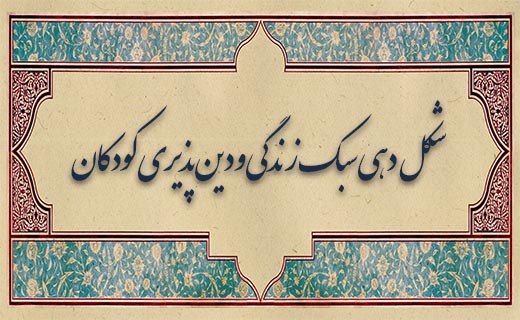 شکل دهی سبک زندگی و دین پذیری کودکان